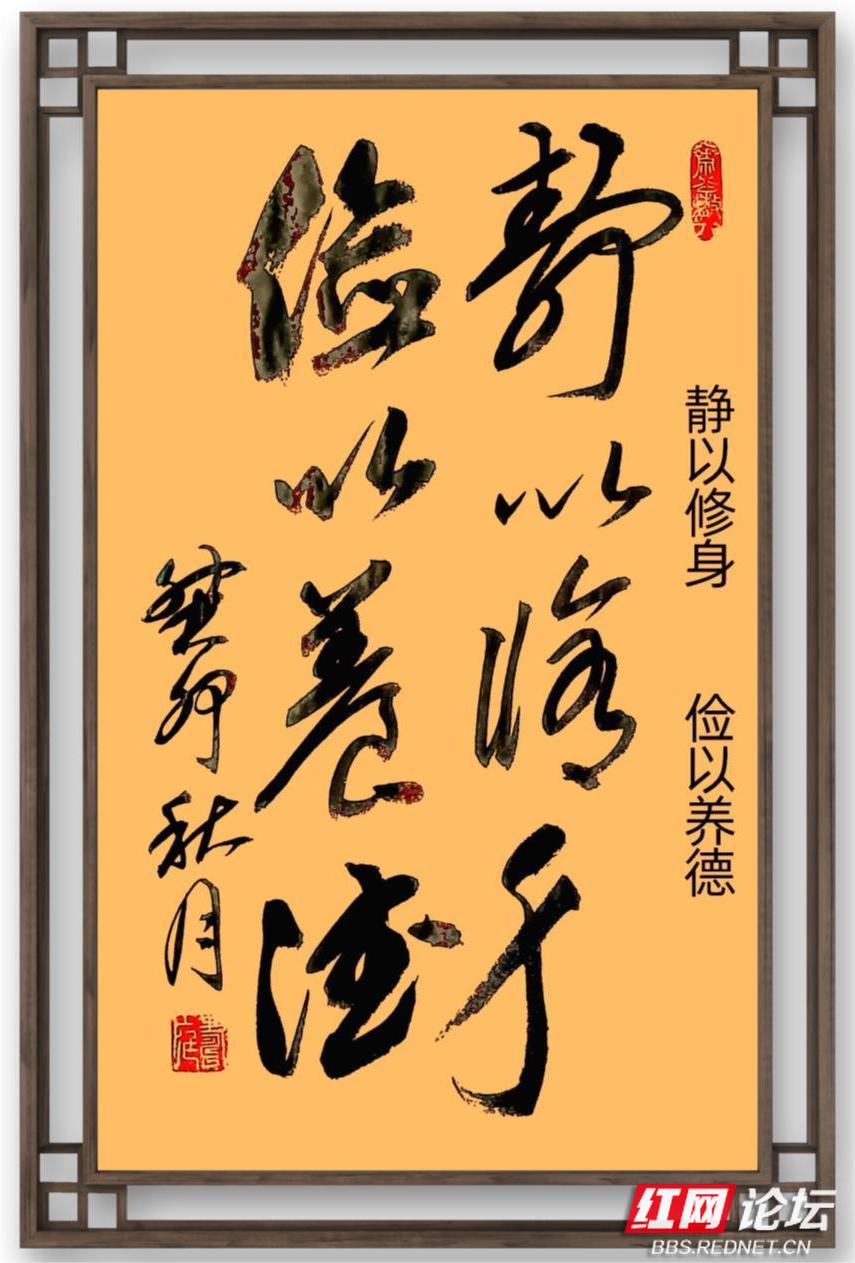 静以修身 俭以养德
静以脩身
儉以養德
癸卯秋月
红网论坛
BBS.REDNET.CN